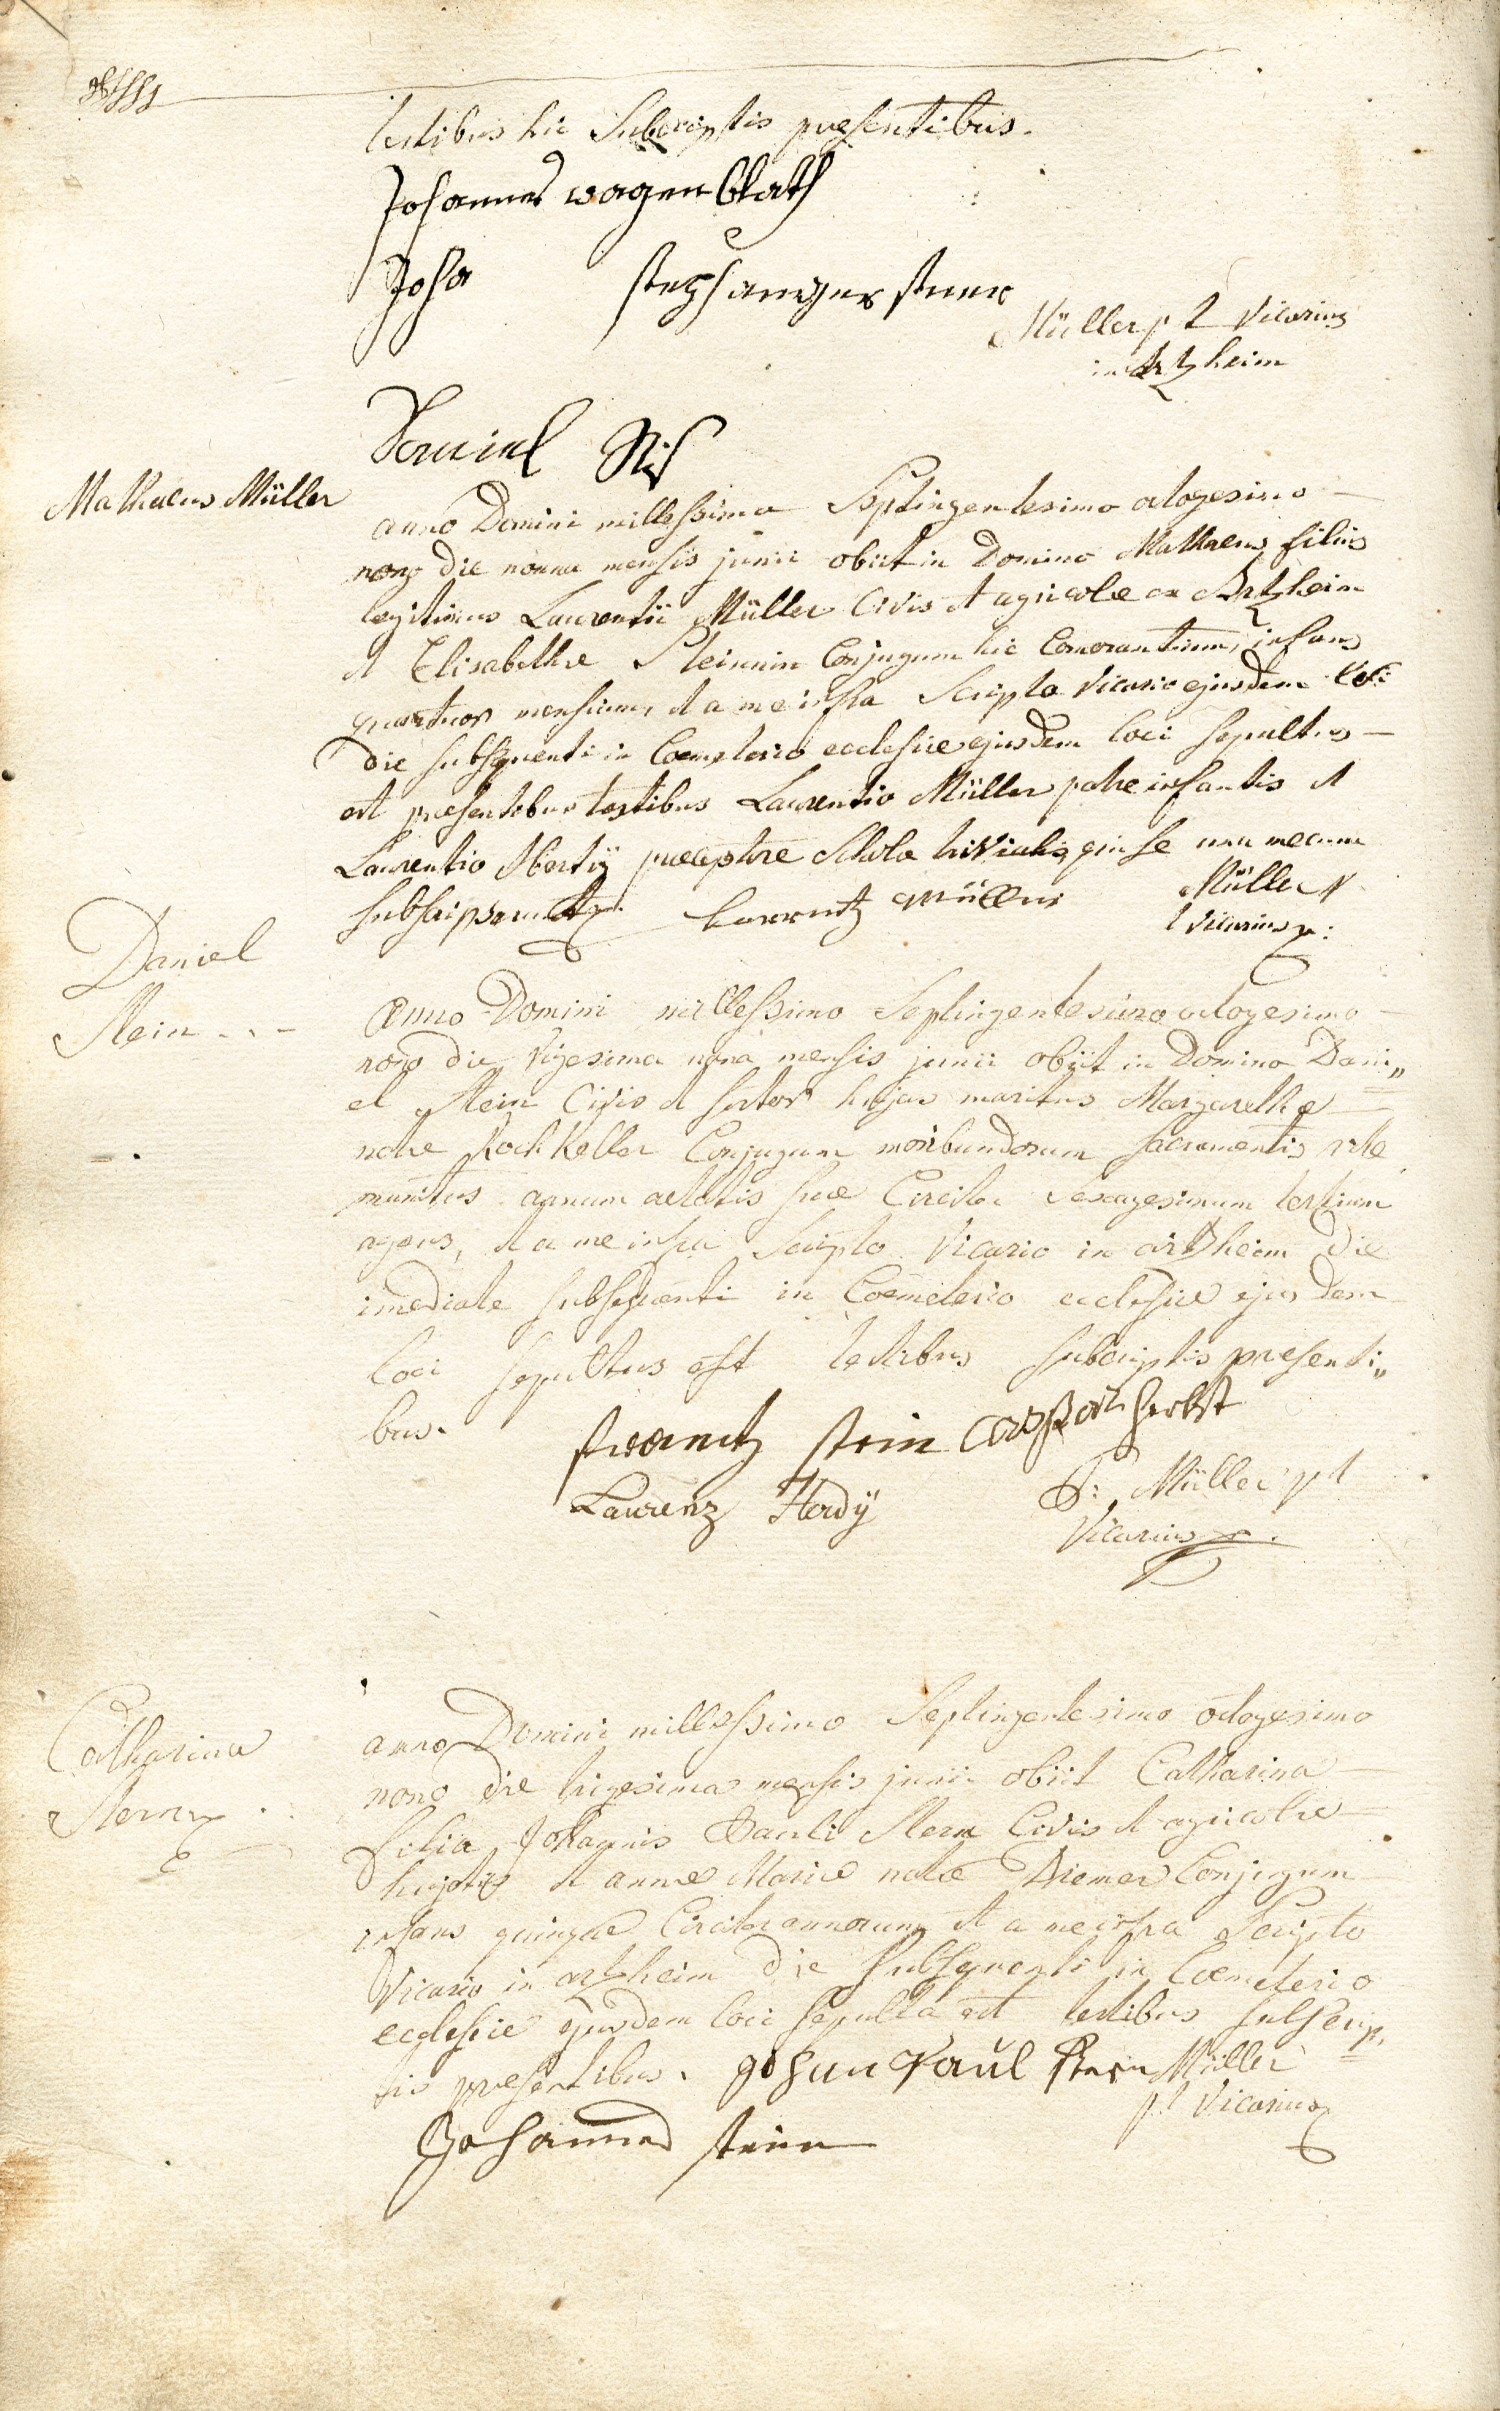 testibus hic Subscriptis presentibus.
Johannes wagenblath
Joha stephanger
Müller p t Vicarius
in Artzheim
Daniel
Mathaeus Müller
anno Domini millessimo Septingentesimo octogesimo
nono die nonna mensis junii obiit in Domino Mathaeus filius
legitimus Laurentii Müller Civis et agricolae ex Artzheim
et Elisabethae Steinnin Conjugum hic Comorantium, infans
quartuor mensium, et a me infra Scripto Vicario ejusdem loci
die subsequenti in Coemeterio ecclesiae ejusdem loci sepultus
est presentibus testibus Laurentio Müller patre infantis et
Laurentio praeceptore Schola trivialis qui se una mecum
subscripserunt Lorentz Müller Müller p
t Vicarius
Daniel
Stein
anno Domini millessimo Septingentesimo octogesimo
nono die Vigesima nona mensis junii obiit in Domino Dani„
el Stein Civis et sartor hujas maritus Margarethae
natae Kochkeller Conjugum moribundorum sacramentis rite
munitus annum aetatis suae Circiter Sexagesimum tertium
agens, et a me infra Scripto Vicario in artzheim die
imediate subsequenti in Coemeterio ecclesiae ejusdem
loci sepultus est testibus subscriptis presenti„
bus.
frantz stein Caspar herbst
Laurenz Hordÿ
P: Müller p t
Vicarius
Catharina
Stern
anno Domini millessimo Septingentesimo octogesimo
nono die trigesima mensis junii obiit Catharina
filia Johannis Pauli Stern Civis et agricolae
hujatis et annae Mariae natae Diemer Conjugum
infans quinque Circiter annorum et a me infra Scripto
Vicario in artzheim die subsequenti in Coemeterio
ecclesiae ejusdem loci sepulta est testibus subscrip„
tis presentibus. Johan Paul Stern Müller
p t Vicarius
Johannes stein